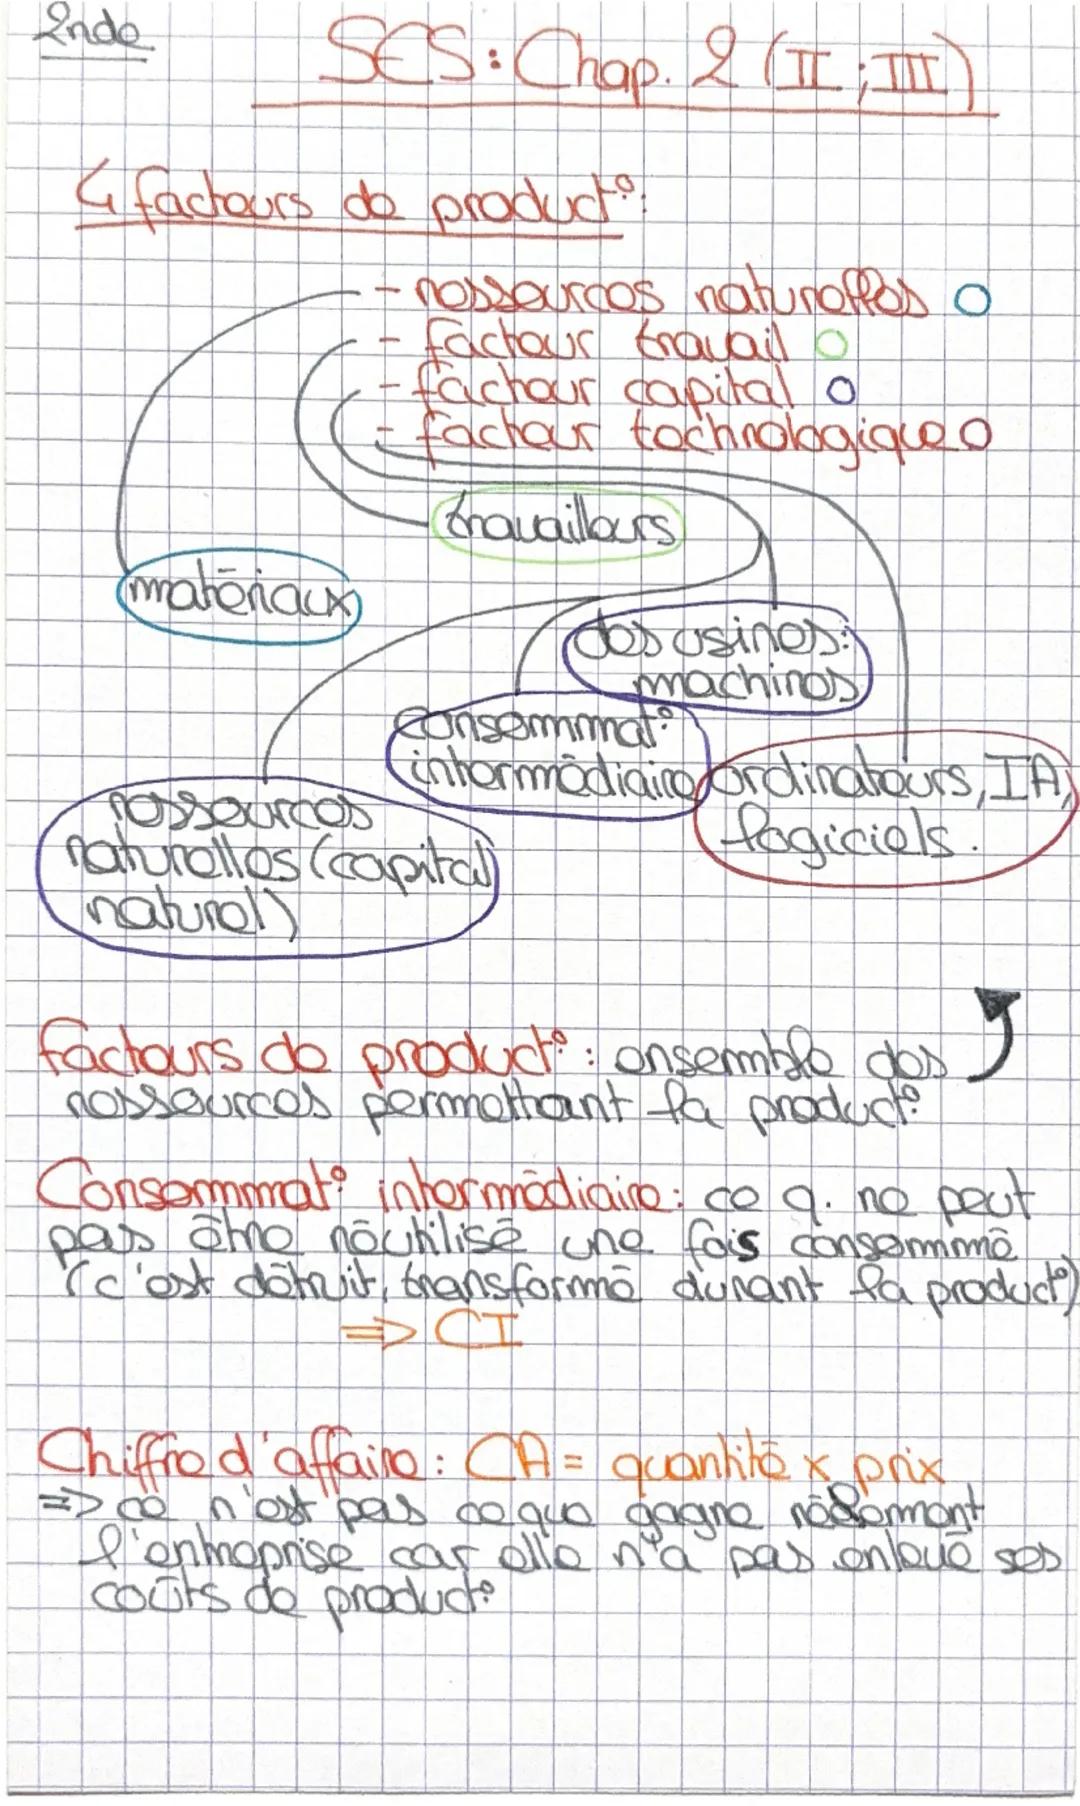 2nde
SES : Chap. 2 (II ; III)
4 facteurs de product° :
- ressources naturelles
- facteur travail
- facteur capital
- facteur technologique
travailleurs
matériaux
des usines :
machines
Consommat°
intermédiaire
ordinateurs, IA,
logiciels.
ressources
naturelles (capital
naturel)
facteurs de product° : ensemble des
ressources permettant la product°
Consommat° intermédiaire : ce q. ne peut
pas être réutilisé une fois consommé
(c'est détruit, transformé durant la product°)
=> CI
Chiffre d'affaire : CA = quantité x prix
=> ce n'est pas ce que gagne réellement
l'entreprise car elle n'a pas enlevé ses
coûts de product°